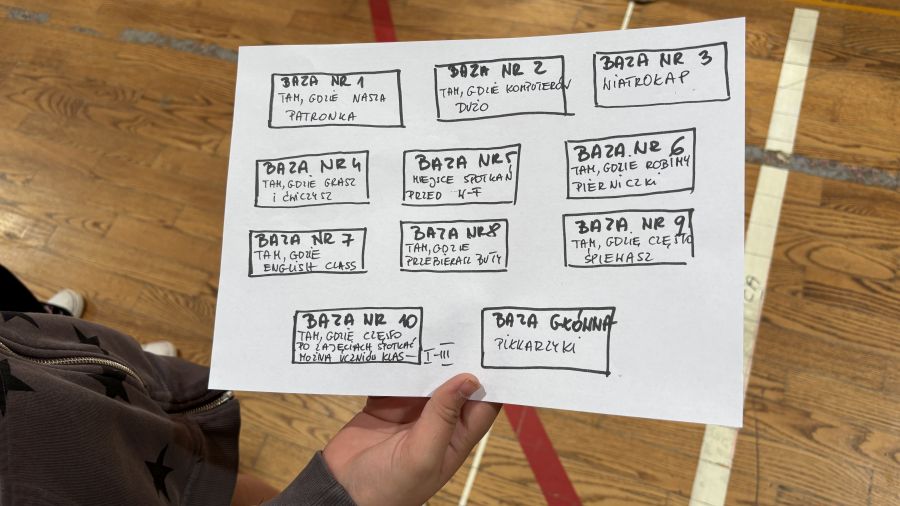 BAZA NR 1
TAM, GDZIE NASZA
PATRONKA
BAZA NR 2
TAM, GDZIE KOMPUTERÓW
DUŻO
BAZA NR 3
WIATROŁAP
BAZA NR 4
TAM, GDZIE GRASZ
I ĆWICZYSZ
BAZA NR 5
MIEJSCE SPOTKAŃ
PRZED W-F
BAZA NR 6
TAM, GDZIE ROBIMY
PIERNICZKI
BAZA NR 7
TAM, GDZIE
ENGLISH CLASS
BAZA NR 8
TAM, GDZIE
PRZEBIERASZ BUTY
BAZA NR 9
TAM, GDZIE CZĘSTO
ŚPIEWASZ
BAZA NR 10
TAM, GDZIE CZĘSTO
PO ZAJĘCIACH SPOTKAĆ
MOŻNA UCZNIÓW KLAS I-III
BAZA GŁÓWNA
PIŁKARZYKI